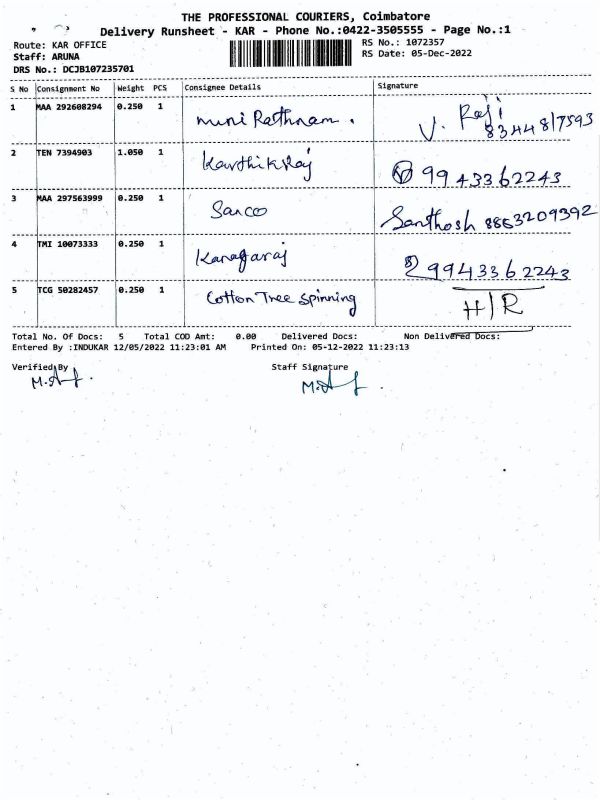 THE PROFESSIONAL COURIERS, Coimbatore
Delivery Runsheet - KAR - Phone No.:0422-3505555 - Page No.:1
Route: KAR OFFICE
RS No.: 1072357
Staff: ARUNA
RS Date: 05-Dec-2022
DRS No.: DCJB107235701
S No Consignment No Weight PCS Consignee Details Signature
1 MAA 292608294 0.250 1 muni Rathnam . V. Raji
8344817593
2 TEN 7394903 1.050 1 Karthik Raj 9943362243
3 MAA 297563999 0.250 1 Sanco Santhosh 8863209392
4 TMI 10073333 0.250 1 Kanagaraj 9943362243
5 TCG 50282457 0.250 1 Cotton Tree Spinning H/R
Total No. Of Docs: 5 Total COD Amt: 0.00 Delivered Docs: Non Delivered Docs:
Entered By :INDUKAR 12/05/2022 11:23:01 AM Printed On: 05-12-2022 11:23:13
Verified By Staff Signature